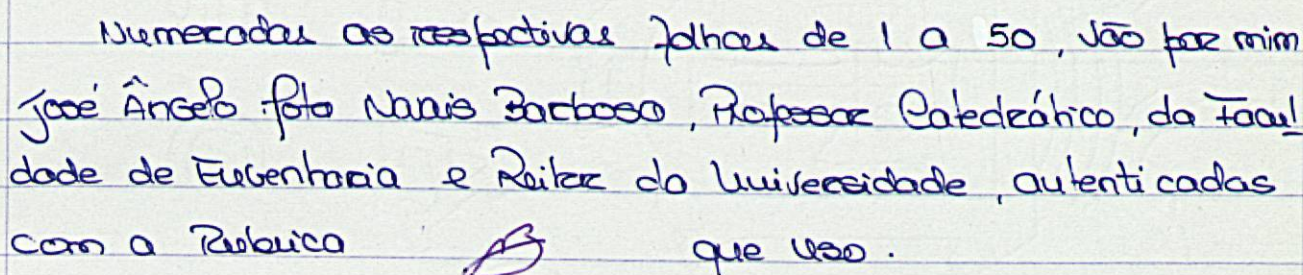 Numeradas as respectivas folhas de 1 a 50, vão por mim
José Ângelo Mota Novais Barbosa, Professor Catedrático, da Facul
dade de Engenharia e Reitor da Universidade, autenticadas
com a Rubrica que uso.